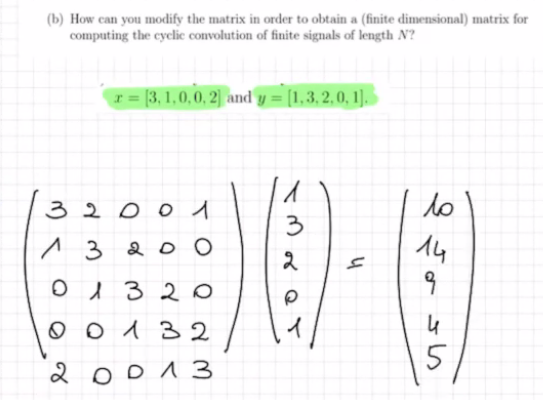 (b) How can you modify the matrix in order to obtain a (finite dimensional) matrix for
computing the cyclic convolution of finite signals of length N?
x = [3, 1, 0, 0, 2] and y = [1, 3, 2, 0, 1].
3 2 0 0 1 1 10
1 3 2 0 0 3 14
0 1 3 2 0 2 = 9
0 0 1 3 2 0 4
2 0 0 1 3 1 5